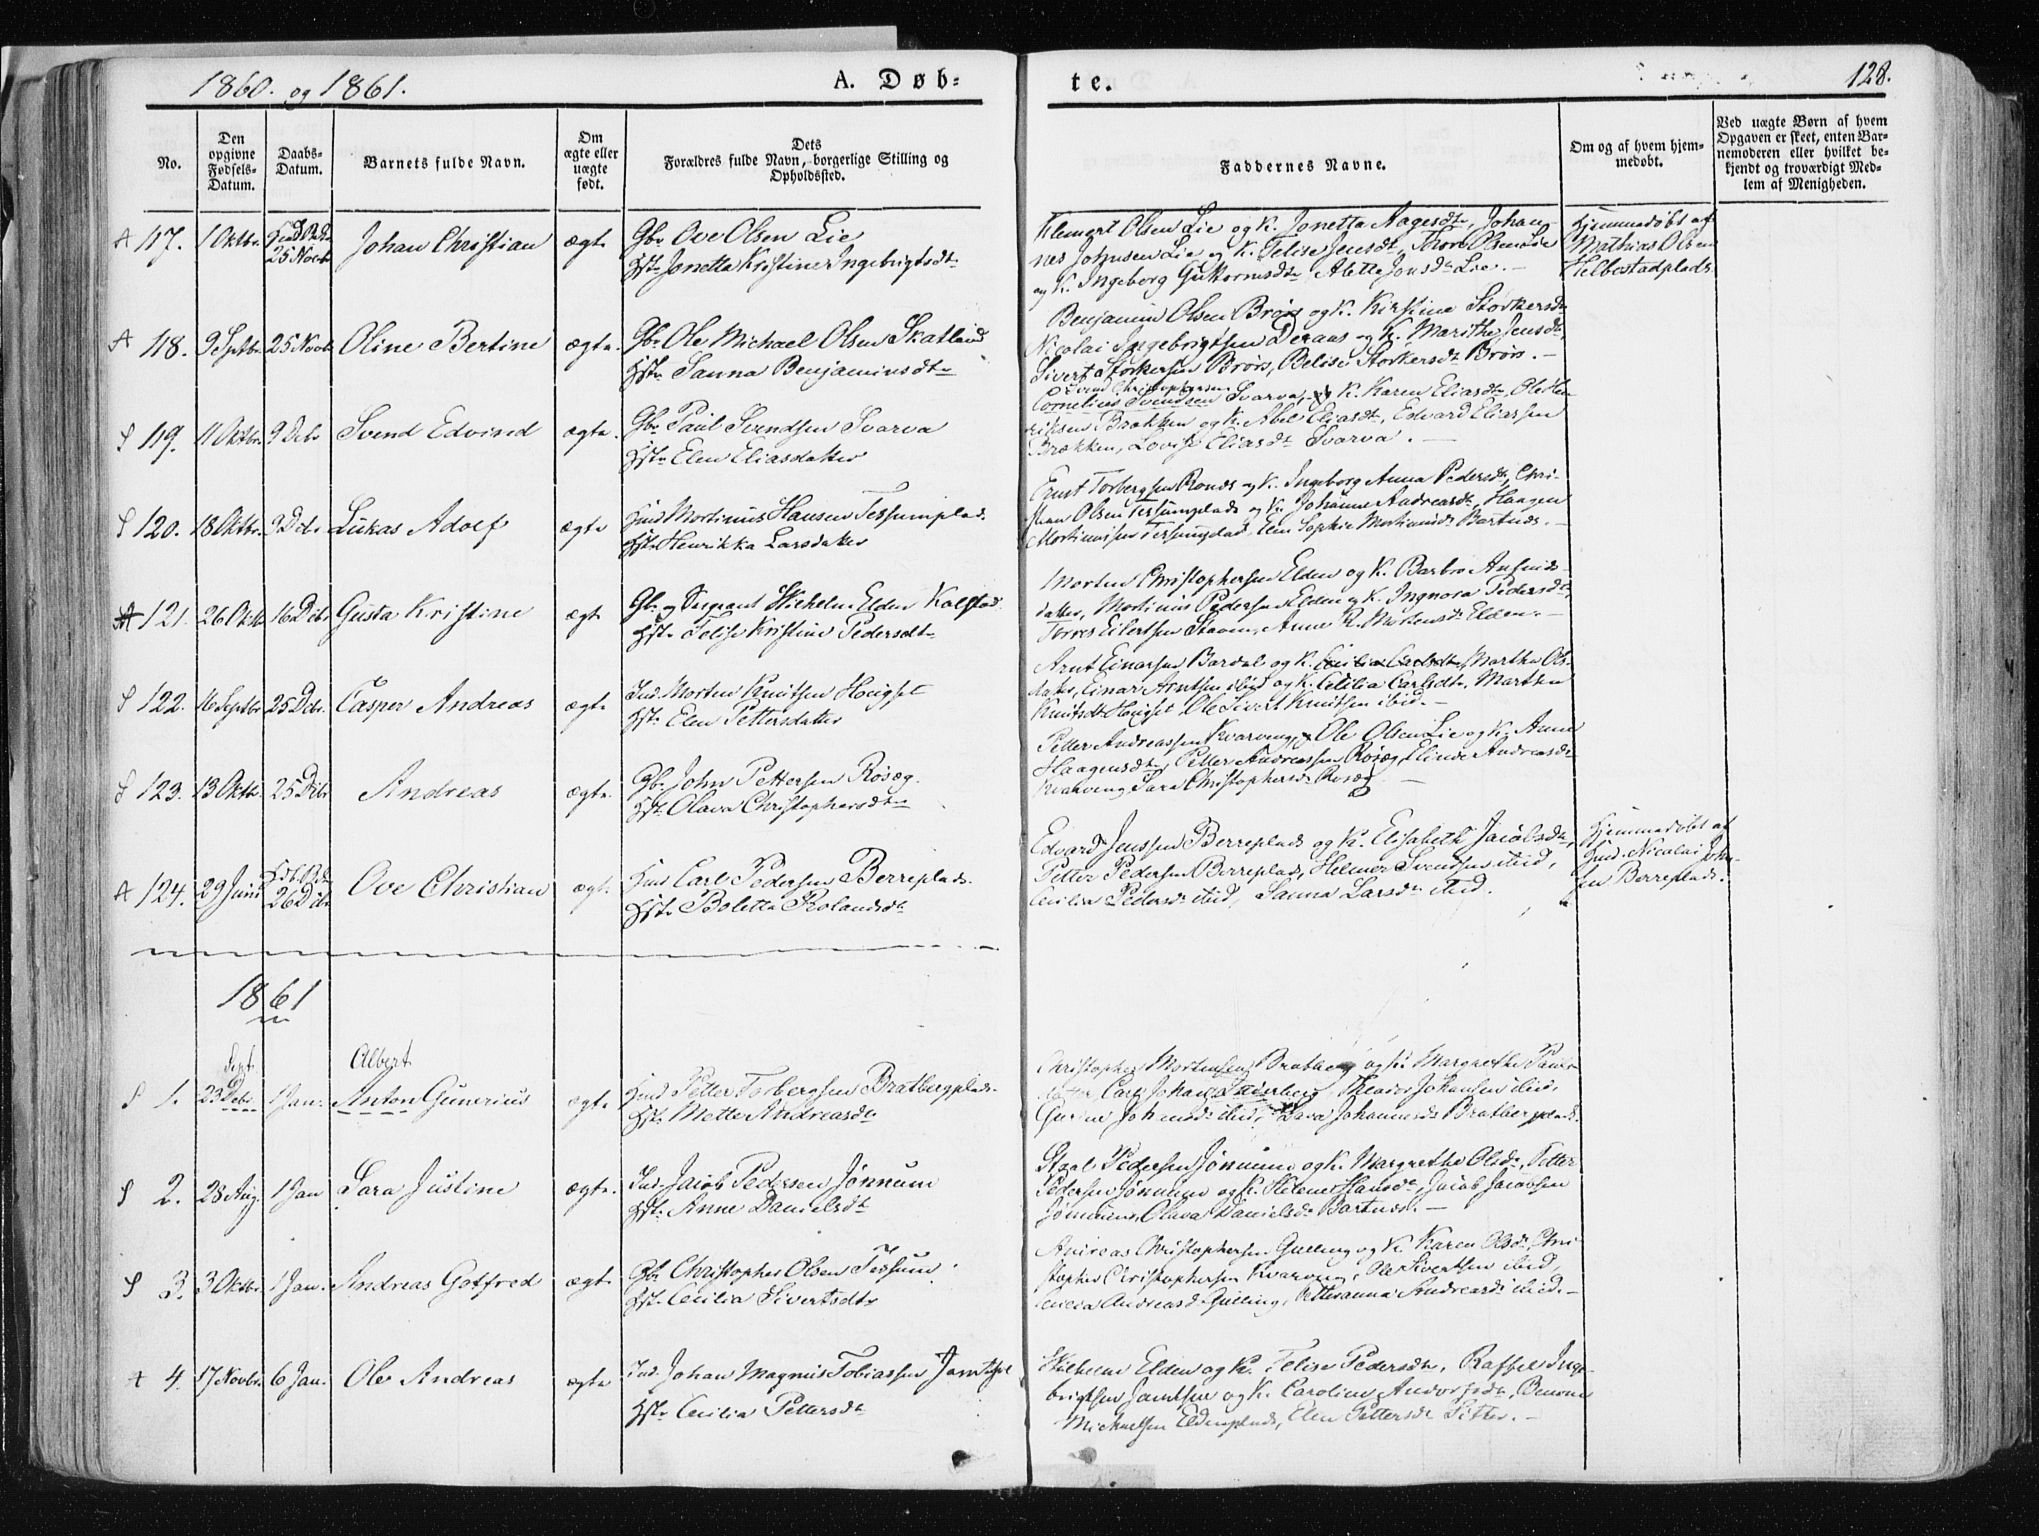 1860. og 1861.
A. Døb-
te.
128.
No.
Den opgivne Fødsels-Datum.
Daabs-Datum.
Barnets fulde Navn.
Om ægte eller uægte født.
Dets Forældres fulde Navn, borgerlige Stilling og Opholdssted.
Faddernes Navne.
Om og af hvem hjem-medøbt.
Ved uægte Børn af hvem Opgaven er skeet, enten Bar-nemoderen eller hvilket be-kjendt og troværdigt Med-lem af Menigheden.
A 117. 1 Oktbr. 25 Novb Johan Christian ægte Gbr Ove Olsen Lie
Hst. Jonetta Kristine Ingebrigtsdtr
Klemert Olsen Lie og K. Jonetta Aagesdtr, Johan-
nes Johnsen Lie og K. Felise Jensdtr, Thore Olsen Lie
og K. Ingeborg Guttormsdtr, Aletta Jonsdr Lie. —
Hjemmedøbt af
Mathias Olsen
Helbostadplads
A 118. 9 Septbr. 25 Novb Oline Bertine ægte. Gbr Ole Michael Olsen Skatland
Hstr Sanna Benjaminsdtr
Benjamin Olsen Brørs og K. Kirstine Storkersdtr
Nicolai Ingebrigtsen Deraas og K. Marithe Jensdtr,
Sivert Storkersen Brørs, Belise Storkersdr Brørs. —
S 119. 11 Oktbr. 9 Debr Svend Edvind ægte. Gbr Paul Svendsen Svarva
Hstr Elen Eliasdatter
Svend Christophersen
Cornelius Svendsen Svarva, og K. Karen Eliasdtr, Ole Hen-
riksen Brækken og K. Abel Eliasdtr, Edvard Eliassen
Brækken, Lovise Eliasdr Svarva. —
S 120. 18 Oktbr. 9 Debr Lukas Adolf ægte Hmd Mortinus Hansen Tessumplad.
Hstr Henrikka Larsdatter
Ernst Torbergsen Rønds og K. Ingeborg Anna Pedersdtr, Chri-
stian Olsen Tessumplads og K. Johanna Andreasdtr, Haagen
Mortinussen Tessumplad, Elen Sophie Mortinusdr Bartnæs. —
A 121. 26 Oktb 16 Debr Gusta Kristine ægte Gbr og Sergeant Wilhelm Elden Kolstad.
Hstr Felise Kristine Pedersdtr
Morten Christophersen Elden og K. Barbro Arfinds-
datter, Mortinus Pedersen Elden og K. Ingnora Pedersdtr,
Torres Eilertsen Staven, Anne R. Mortensdr Elden. —
S 122. 16 Septbr. 25 Debr. Casper Andreas ægte Ind. Morten Knutsen Høigset
Hstr Elen Pettersdatter
Arnt Einarsen Bardal og K. Cecilia Carlsdtr, Martha Ols-
datter, Einar Arntsen ibid og K. Cecilia Carlsdtr, Martha
Knutsdtr Høigset Ole Sivert Knutsen ibid. —
S 123. 13 Oktb. 25 Debr Andreas ægte. Gbr John Pettersen Røsæg.
Hstr Olava Christophersdtr
Petter Andreassen Kvarving, Ole Olsen Lie og K. Anne
Haagensdtr, Petter Andreassen Røsæg, Elina Andreasdr
Kvarving, Sara Christophersdr Røsæg —
A 124. 29 Juni 26 Debr Ove Christian ægte Hmd Carl Pedersen Berreplads.
Hstr Boletta Rolandsdtr
Edvard Jenssen Berreplads og K. Elisabeth Jacobsdtr,
Petter Pedersen Berreplads, Helmer Svendsen ibid,
Cecilia Pedersdr ibid, Sanna Larsdr ibid.
Hjemmedøbt af
Hmd. Nicolai John-
sen Berreplads.
1861
Sept
Albert
S 1. 23 Debr. 1 Jan. Anton Gunerius ægte Hmd Petter Torbergsen Bratbergplads.
Hstr Mette Andreasdtr
Christopher Mortensen Bratberg og K. Margrethe Pauls-
datter, Carl Johan, Theodor Johansen ibid,
Johansdr ibid, Johannesdr Bratbergplads.
S 2. 28 Aug. 1 Jan Sara Justine ægte. Ind. Jacob Pedersen Jønnum
Hstr. Anne Danielsdtr
Pedersen Jønnum og K. Margrethe Olsdtr, Petter
Pedersen Jønnum og K. Helene Hansdtr, Jacob Jacobsen
Jønnum, Olava Danielsdr Bartnæs. —
S 3. 3 Oktbr. 1 Jan. Andreas Gotfred ægte Gbr Christopher Olsen Tessum.
Hstr Cecilia Sivertsdtr
Andreas Christophersen Gulling og K. Karen Olsdtr, Chri-
stopher Christophersen Kvarving, Ole Sivertsen ibid,
Andreasd. Gulling, Petteranna Andreasdr ibid. —
A 4. 17 Novbr. 6 Jan. Ole Andreas ægte Ind. Johan Magnus Tobiassen Jamtse
Hstr Cecilia Pettersdtr
Wilhelm Elden og K. Felise Pedersdtr, Raffel Inge-
brigtsen Jamtse og K. Caroline Andorsdtr, Benone
Michaelsen Eldenplads, Elen Pettersdr Sitter. —